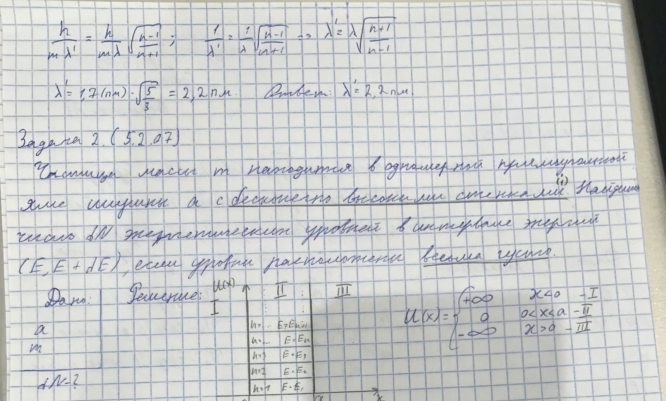 h/(mλ') = h/(mλ) √((n-1)/(n+1)) ; 1/λ' = 1/λ √((n-1)/(n+1)) => λ' = λ √((n+1)/(n-1))
λ' = 1,7(пм)·√(5/3) = 2,2 пм Ответ: λ' = 2,2 пм.
Задача 2 (5.2.07)
Частица массы m находится в одномерной прямоугольной
яме ширины a с бесконечно высокими стенками (i) Найдите
число dN энергетических уровней в интервале энергий
(E, E + dE), если уровни расположены весьма густо.
Дано: Решение: U(x) I II III
a
m
dN-?
n=... E=En+1
n=... E=En
n=3 E=E3
n=2 E=E2
n=1 E=E1
x
U(x) = { +∞ x<0 - I
0 0<x<a - II
-∞ x>a - III